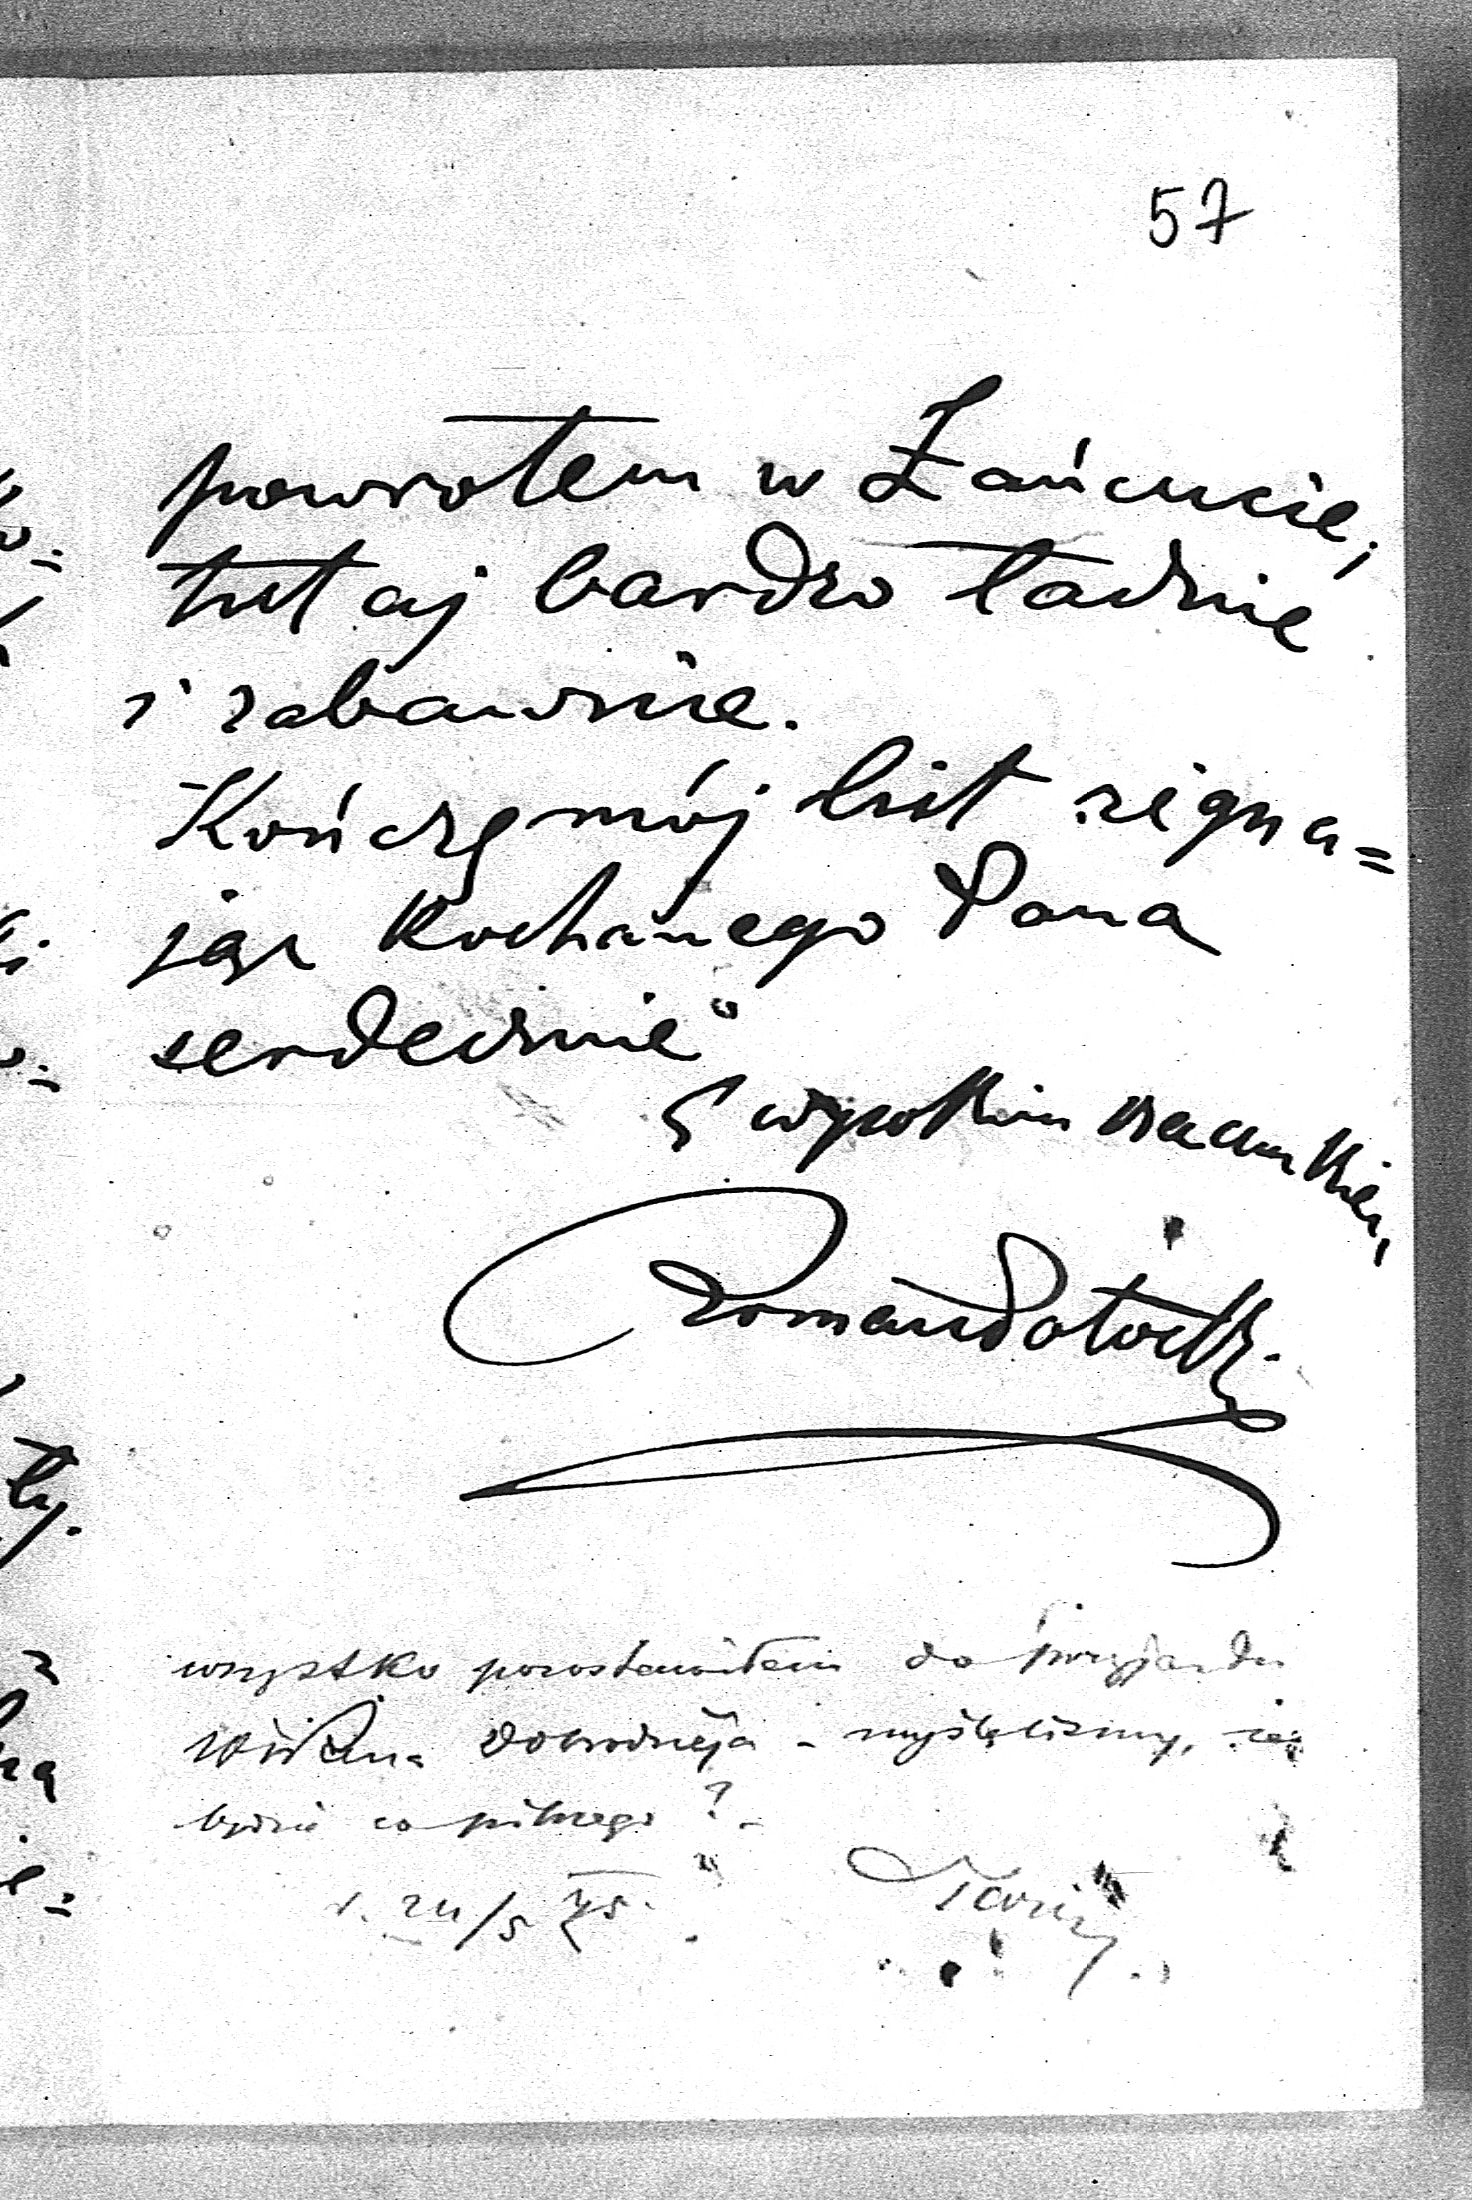 57
powrotem w Łańcucie,
tutaj bardzo ładnie
i zabawnie.
Kończę mój list żegna=
jąc Kochanego Pana
serdecznie
z wysokim szacunkiem
Roman Potocki
wszystko pozostawiłem do przyjazdu
WPana Dobrodzieja - myśleliśmy, że
będzie co pilnego? -
24/5